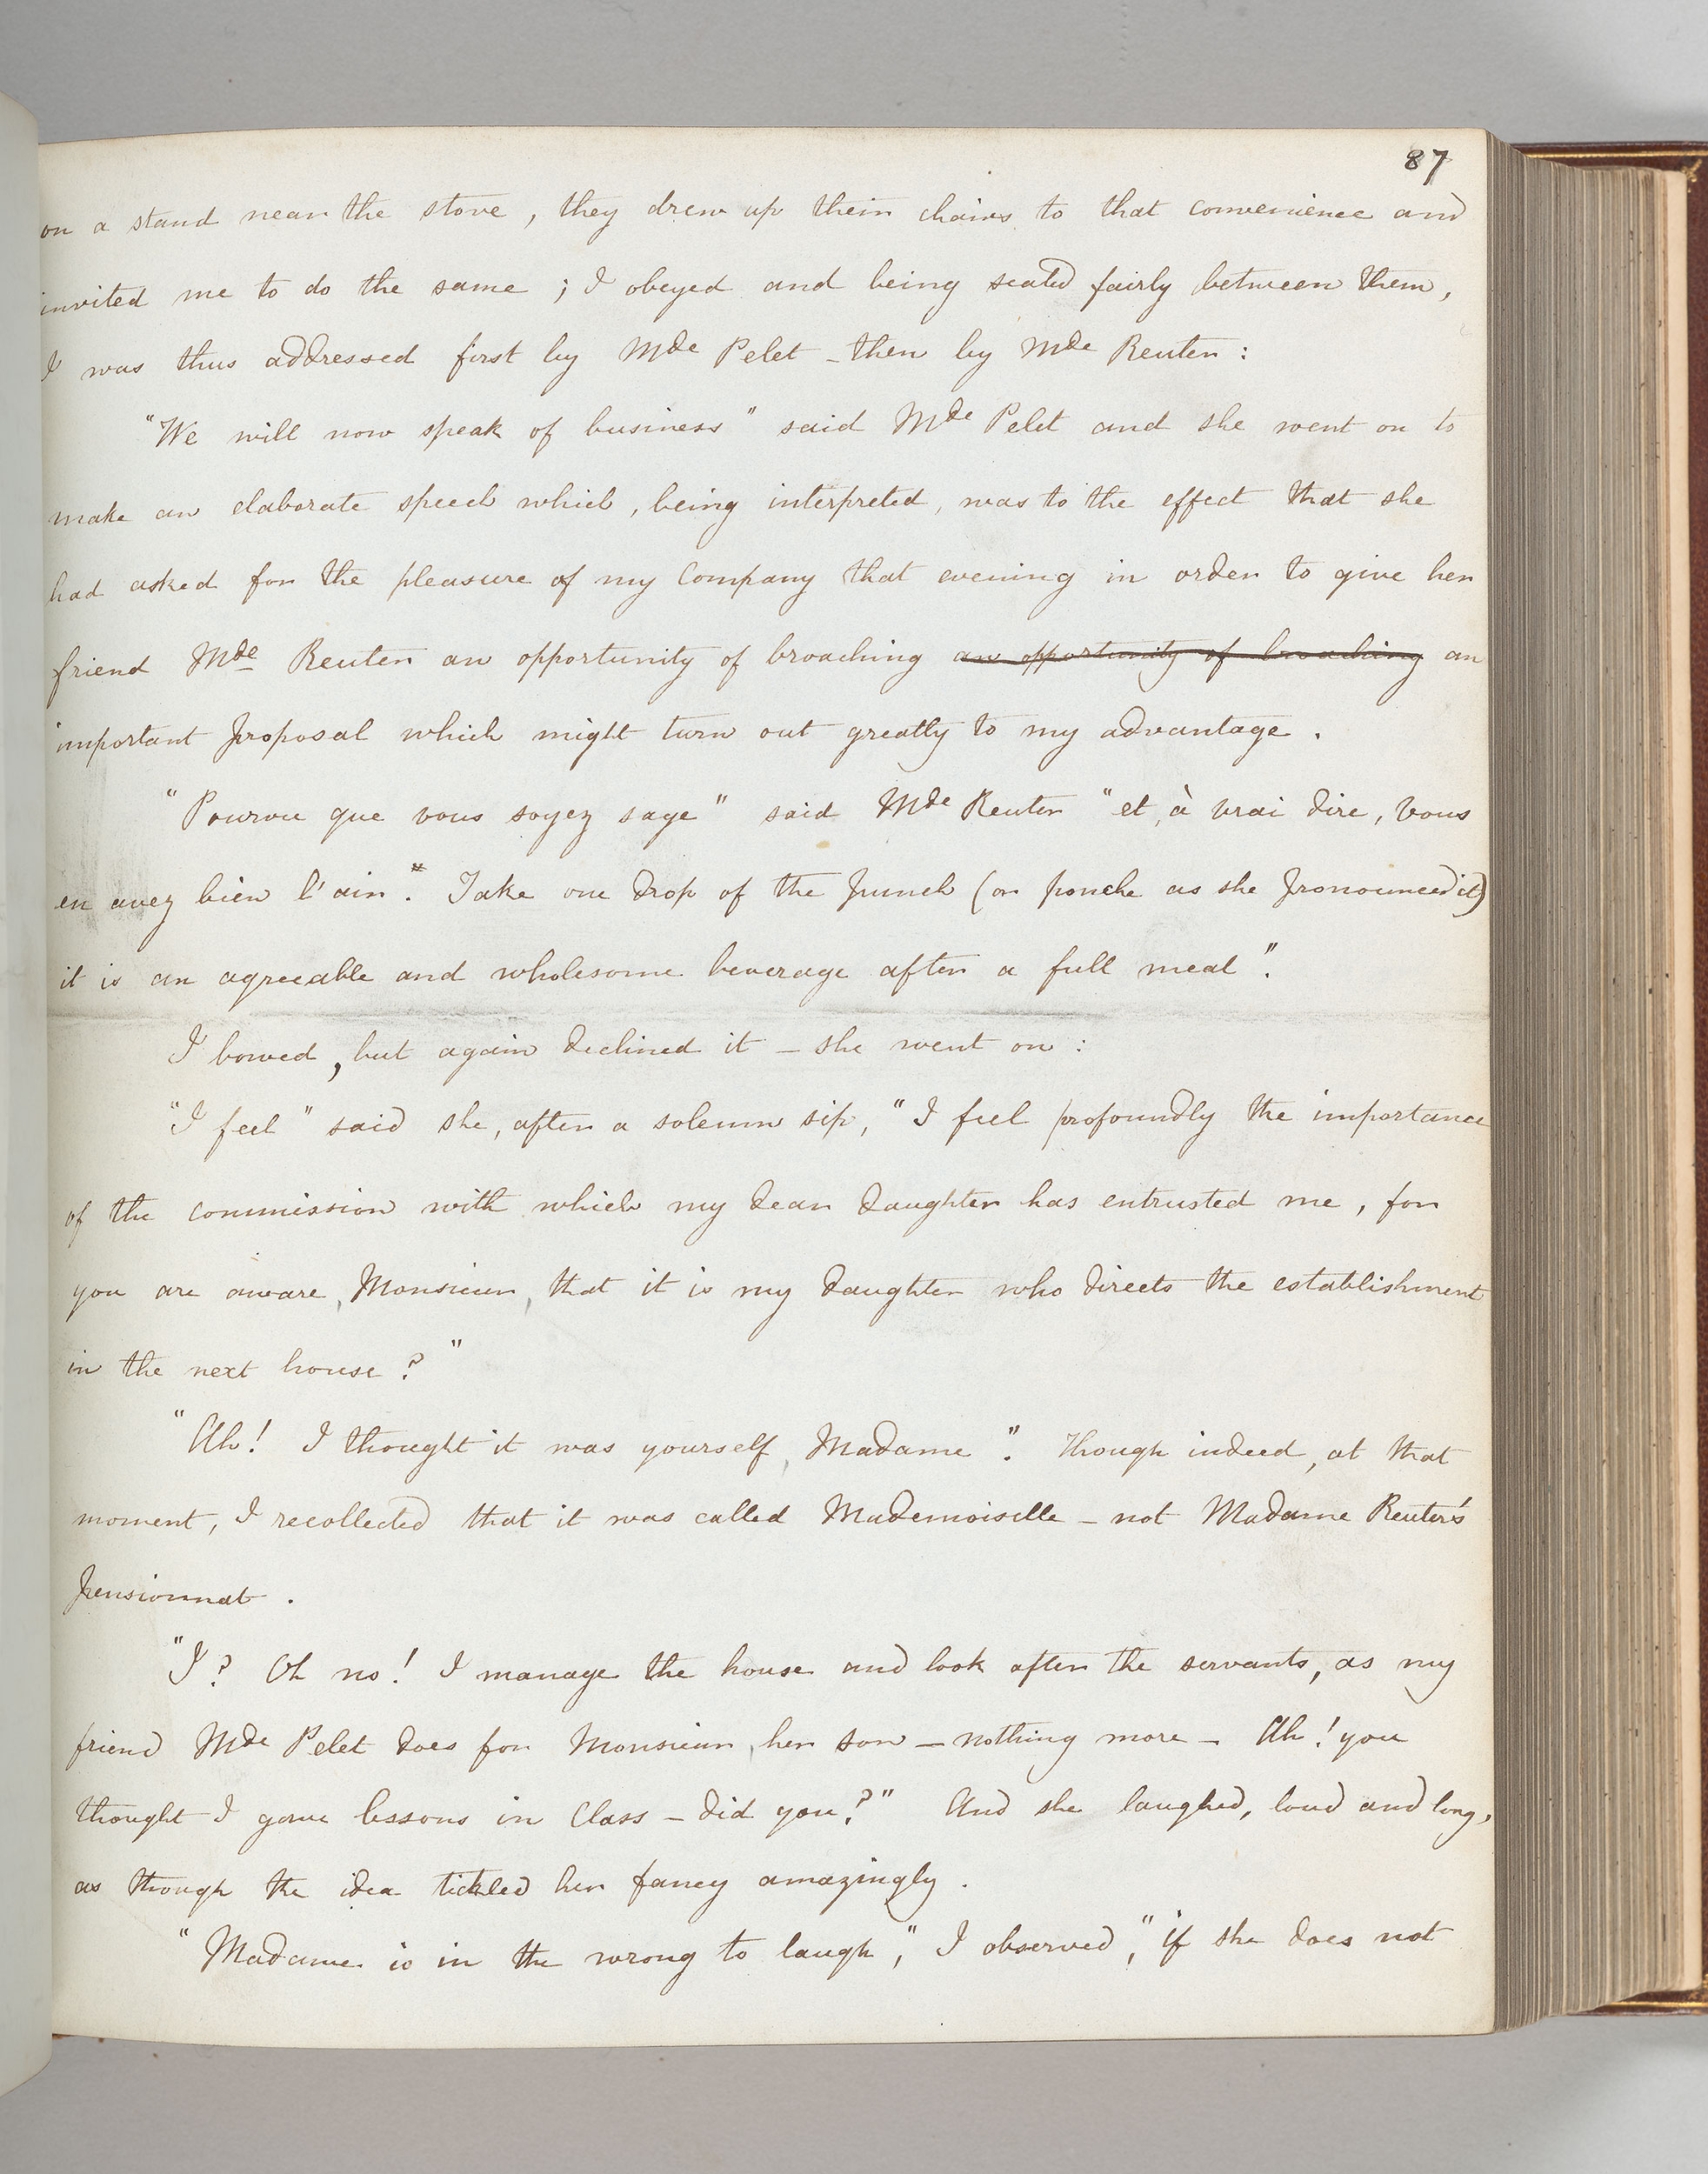 87
on a stand near the stove, they drew up their chairs to that convenience and
invited me to do the same; I obeyed and being seated fairly between them,
I was thus addressed first by Mde Pelet - then by Mde Reuter:
"We will now speak of business" said Mde Pelet and she went on to
make an elaborate speech which, being interpreted, was to the effect that she
had asked for the pleasure of my company that evening in order to give her
friend Mde Reuter an opportunity of broaching an opportunity of broaching an
important proposal which might turn out greatly to my advantage.
"Pourvu que vous soyez sage" said Mde Reuter "et, à vrai dire, vous
en avez bien l'air." Take one drop of the punch (or ponche as she pronounced it)
it is an agreeable and wholesome beverage after a full meal".
I bowed, but again declined it - she went on:
"I feel" said she, after a solemn sip, "I feel profoundly the importance
of the commission with which my dear daughter has entrusted me, for
you are aware, Monsieur, that it is my daughter who directs the establishment
in the next house?"
"Ah! I thought it was yourself, Madame". Though indeed, at that
moment, I recollected that it was called Mademoiselle - not Madame Reuter's
pensionnat.
"I? Oh no! I manage the house and look after the servants, as my
friend Mde Pelet does for Monsieur, her son - nothing more - Ah! you
thought I gave lessons in class - did you?" And she laughed, loud and long,
as though the idea tickled her fancy amazingly.
"Madame is in the wrong to laugh," I observed, "if she does not